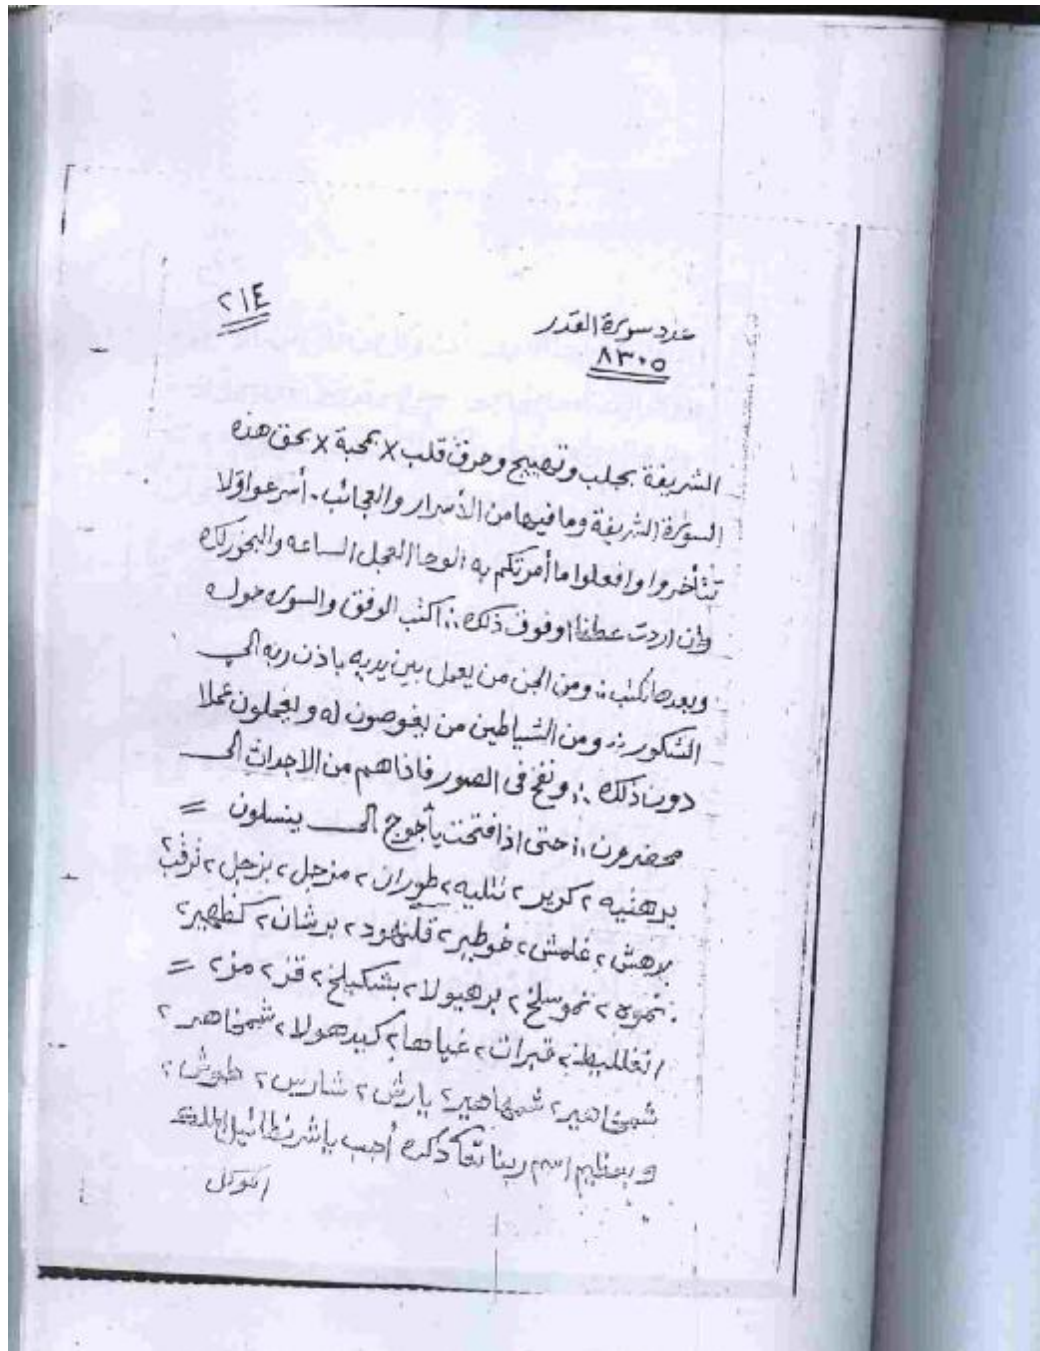 ٢١٤
عدد سورة القدر
٨٣٠٥
الشريفة بجلب وتهييج وحرق قلب x بمحبة x بحق هذه
السورة الشريفة وما فيها من الأسرار والعجائب. أسرعوا ولا
تتأخروا وافعلوا ما أمرتكم به الوحا العجل الساعه والبخور لك
وان اردت عطفا او فوق ذلك ؛ اكتب الوفق والسوره حوله
وبعدها تكتب ؛ ومن الجن من يعمل بين يديه باذن ربه الى
الشكور ؛ ومن الشياطين من يغوصون له ويعملون عملا
دون ذلك ؛ ونفخ في الصور فاذاهم من الاجداث الى
محضرون ؛ حتى اذا فتحت يأجوج الى ينسلون =
برهتيه ٢ كرير ٢ تتليه ٢ طوران ٢ مزجل ٢ بزجل ٢ ترقب ٢
برهش ٢ غلمش ٢ خوطير ٢ قلنهود ٢ برشان ٢ كظهير ٢
نموه ٢ نموسلخ ٢ برهيولا ٢ بشكيلخ ٢ قز ٢ مز ٢ =
انغلليط ٢ قبرات ٢ غياها ٢ كيدهولا ٢ شمخاهر ٢
شمخاهير ٢ شمهاهير ٢ يارش ٢ شارس ٢ طوش ٢
وبعظيم اسم ربنا تعا ذكره أجب يا شرنطائيل الملك
الموكل